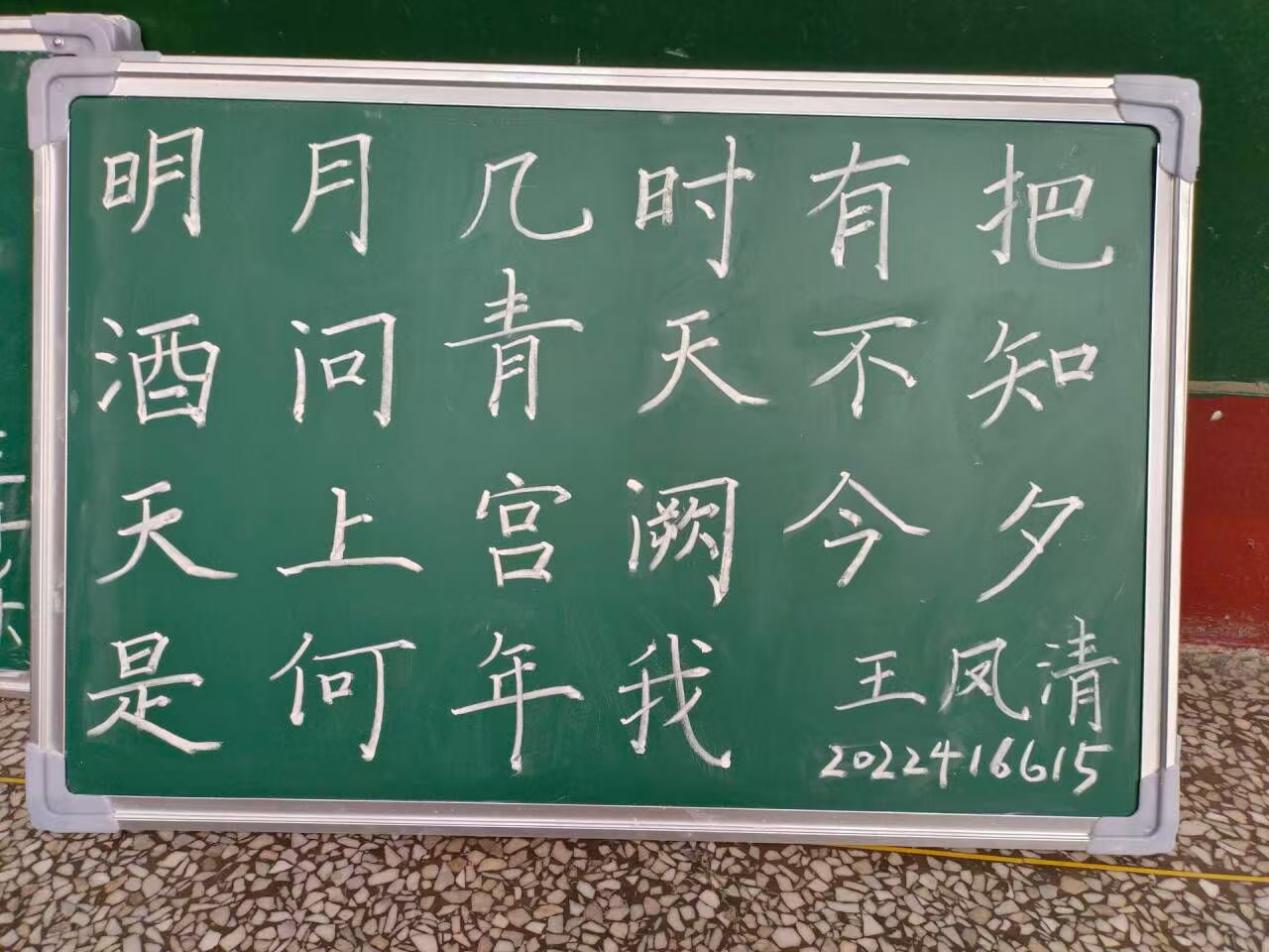 明月几时有把
酒问青天不知
天上宫阙今夕
是何年我
王凤清
2022416615